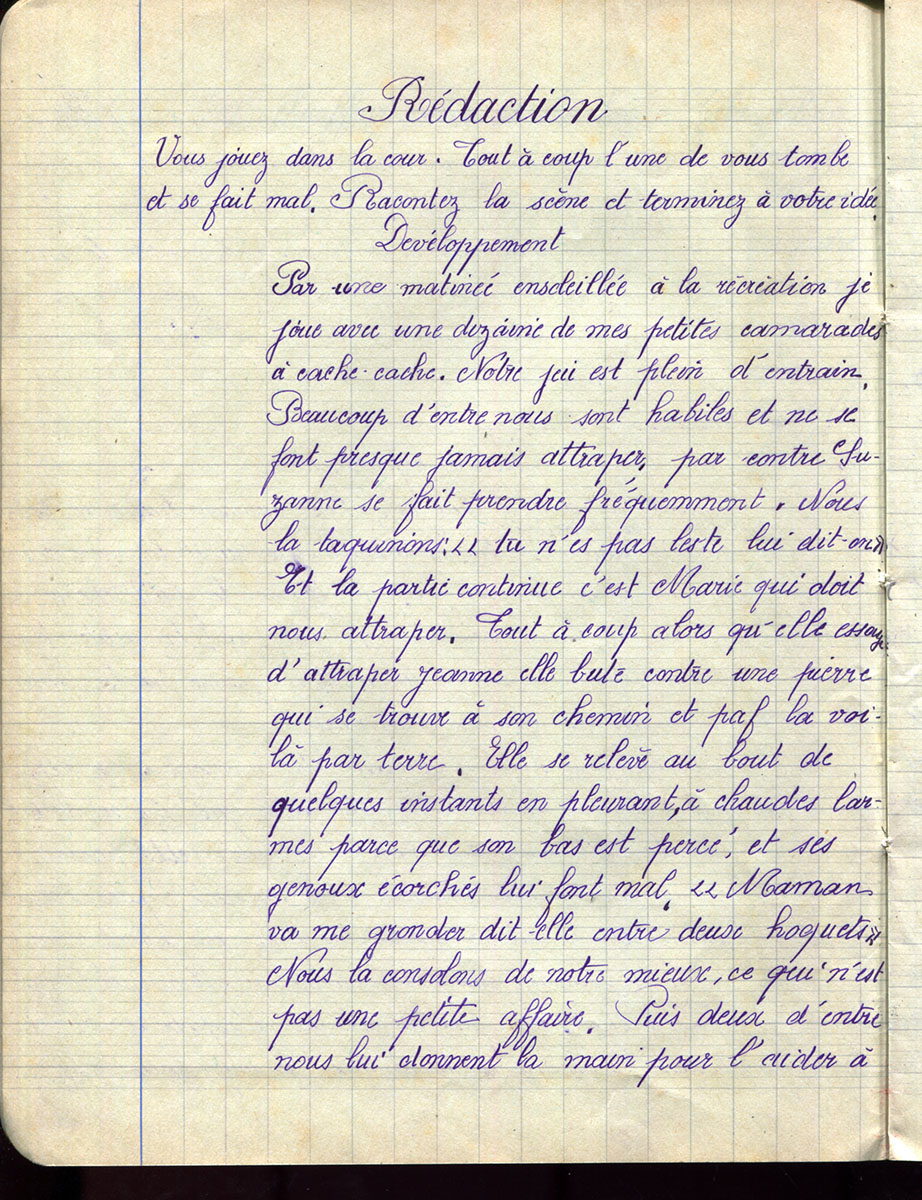 Rédaction
Vous jouez dans la cour. Tout à coup l'une de vous tombe
et se fait mal. Racontez la scène et terminez à votre idée.
Développement
Par une matinée ensoleillée à la récréation je
joue avec une dizaine de mes petites camarades
à cache-cache. Notre jeu est plein d'entrain.
Beaucoup d'entre nous sont habiles et ne se
font presque jamais attraper, par contre Su-
zanne se fait prendre fréquemment. Nous
la taquinons: << tu n'es pas leste lui dit-on >>
Et la partie continue c'est Marie qui doit
nous attraper. Tout à coup alors qu'elle essaye
d'attraper Jeanne elle bute contre une pierre
qui se trouve à son chemin et paf la voi-
là par terre. Elle se relève au bout de
quelques instants en pleurant, à chaudes lar-
mes parce que son bas est percé, et ses
genoux écorchés lui font mal. << Maman
va me gronder dit-elle entre deux hoquets >>
Nous la consolons de notre mieux, ce qui n'est
pas une petite affaire. Puis deux d'entre
nous lui donnent la main pour l'aider à